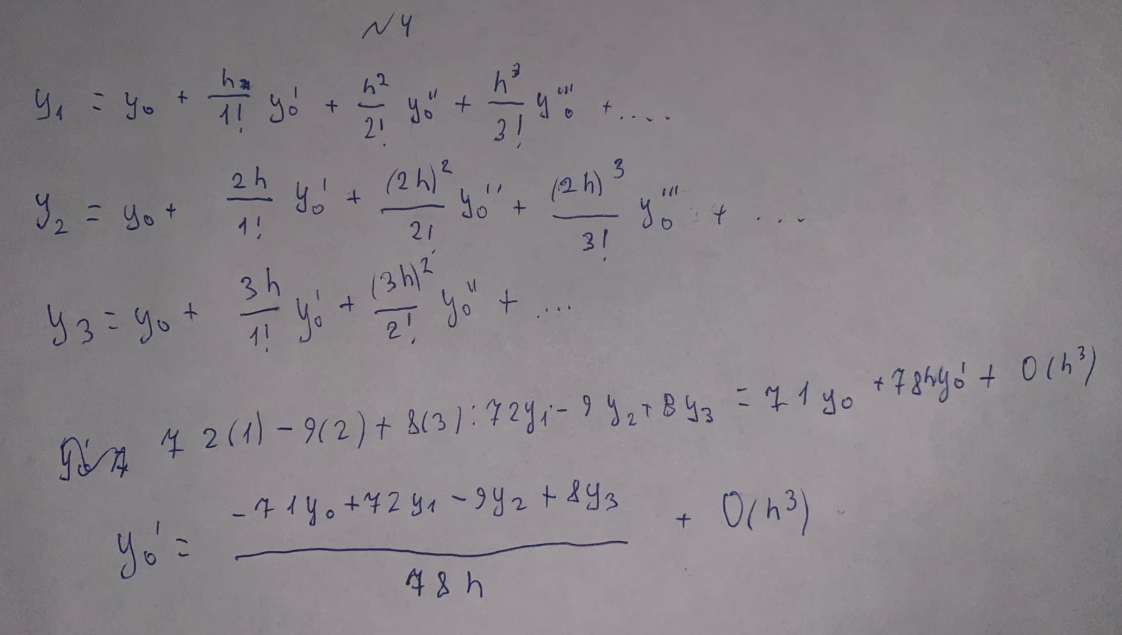 N4
y₁ = y₀ + h/1! y₀' + h²/2! y₀'' + h³/3! y₀''' + ....
y₂ = y₀ + 2h/1! y₀' + (2h)²/2! y₀'' + (2h)³/3! y₀''' + ....
y₃ = y₀ + 3h/1! y₀' + (3h)²/2! y₀'' + ...
72(1) - 9(2) + 8(3) : 72y₁ - 9y₂ + 8y₃ = 71y₀ + 78hy₀' + O(h³)
y₀' = (-71y₀ + 72y₁ - 9y₂ + 8y₃)/78h + O(h³)